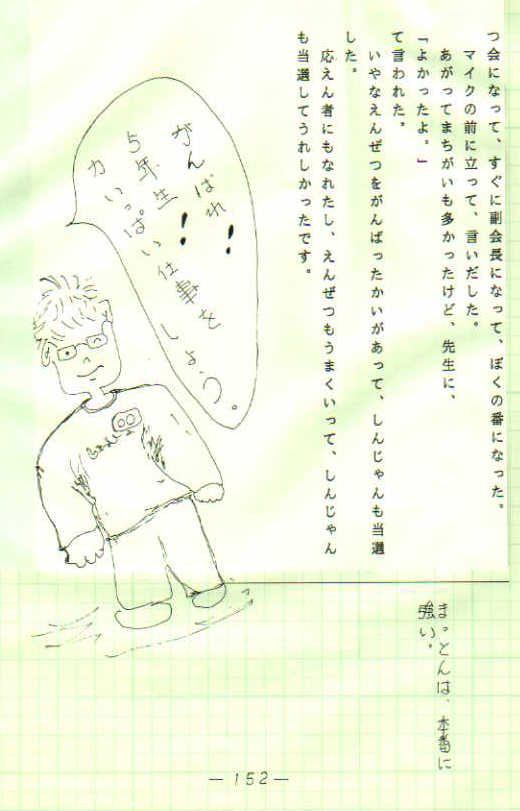 つ会になって、すぐに副会長になって、ぼくの番になった。
マイクの前に立って、言いだした。
あがってまちがいも多かったけど、先生に、
「よかったよ。」
て言われた。
いやなえんぜつをがんばったかいがあって、しんじゃんも当選
した。
応えん者にもなれたし、えんぜつもうまくいって、しんじゃん
も当選してうれしかったです。
がんばれ!
5年生!
力いっぱい仕事を
しよう。
まっとんは、本番に
強い。
—152—